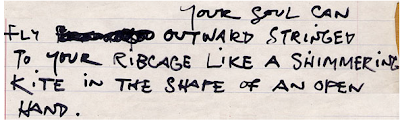 YOUR SOUL CAN
FLY OUTWARD STRINGED
TO YOUR RIBCAGE LIKE A SHIMMERING
KITE IN THE SHAPE OF AN OPEN
HAND.